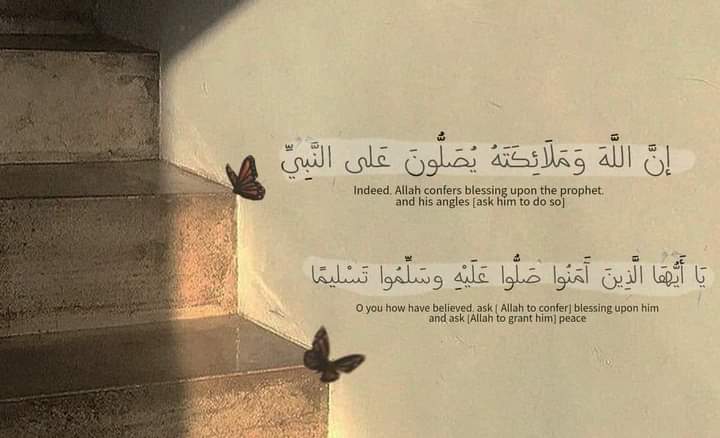 إنَّ اللَّهَ وَمَلَائِكَتَهُ يُصَلُّونَ عَلى النَّبِيِّ
Indeed. Allah confers blessing upon the prophet.
and his angles [ask him to do so]
يَا أَيُّهَا الَّذِينَ آَمَنُوا صَلُّوا عَلَيْهِ وسَلِّمُوا تَسْليمًا
O you how have believed. ask [ Allah to confer] blessing upon him
and ask [Allah to grant him] peace